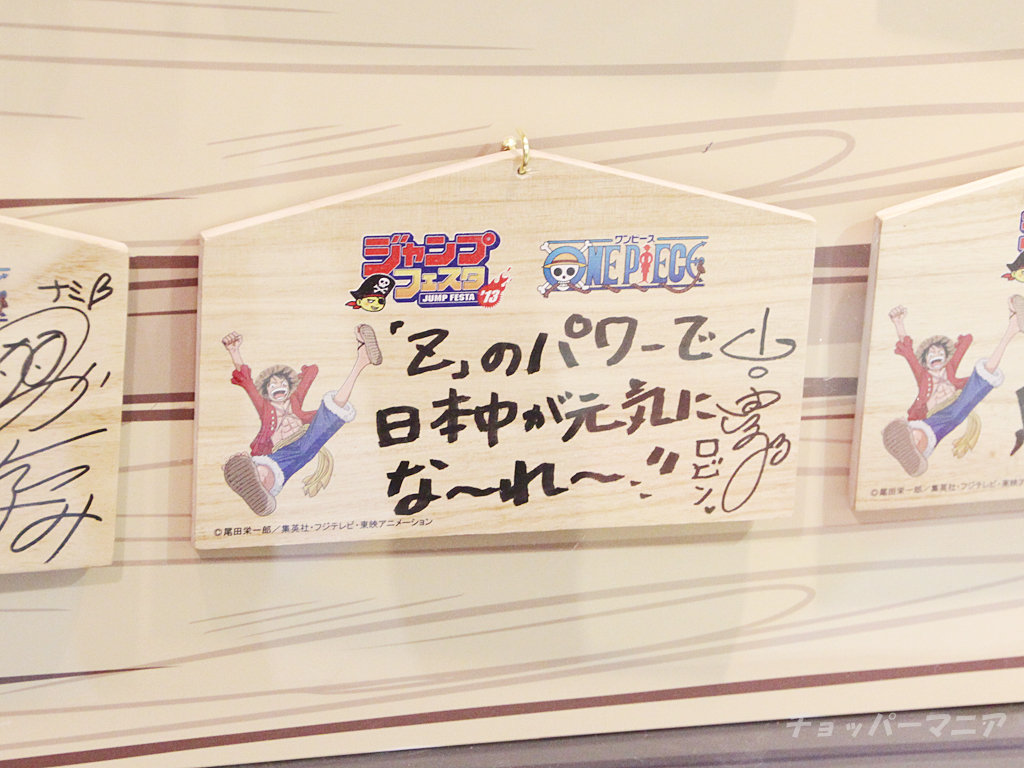 ジャンプ
フェスタ
JUMP FESTA '13
ワンピース
ONE PIECE
「Z」のパワーで
日本中が元気に
な〜れ〜!!
ロビン♥
©尾田栄一郎/集英社・フジテレビ・東映アニメーション
ナミ
©尾田栄一郎/集英社・フジテレビ・東映アニメ
チョッパーマニア